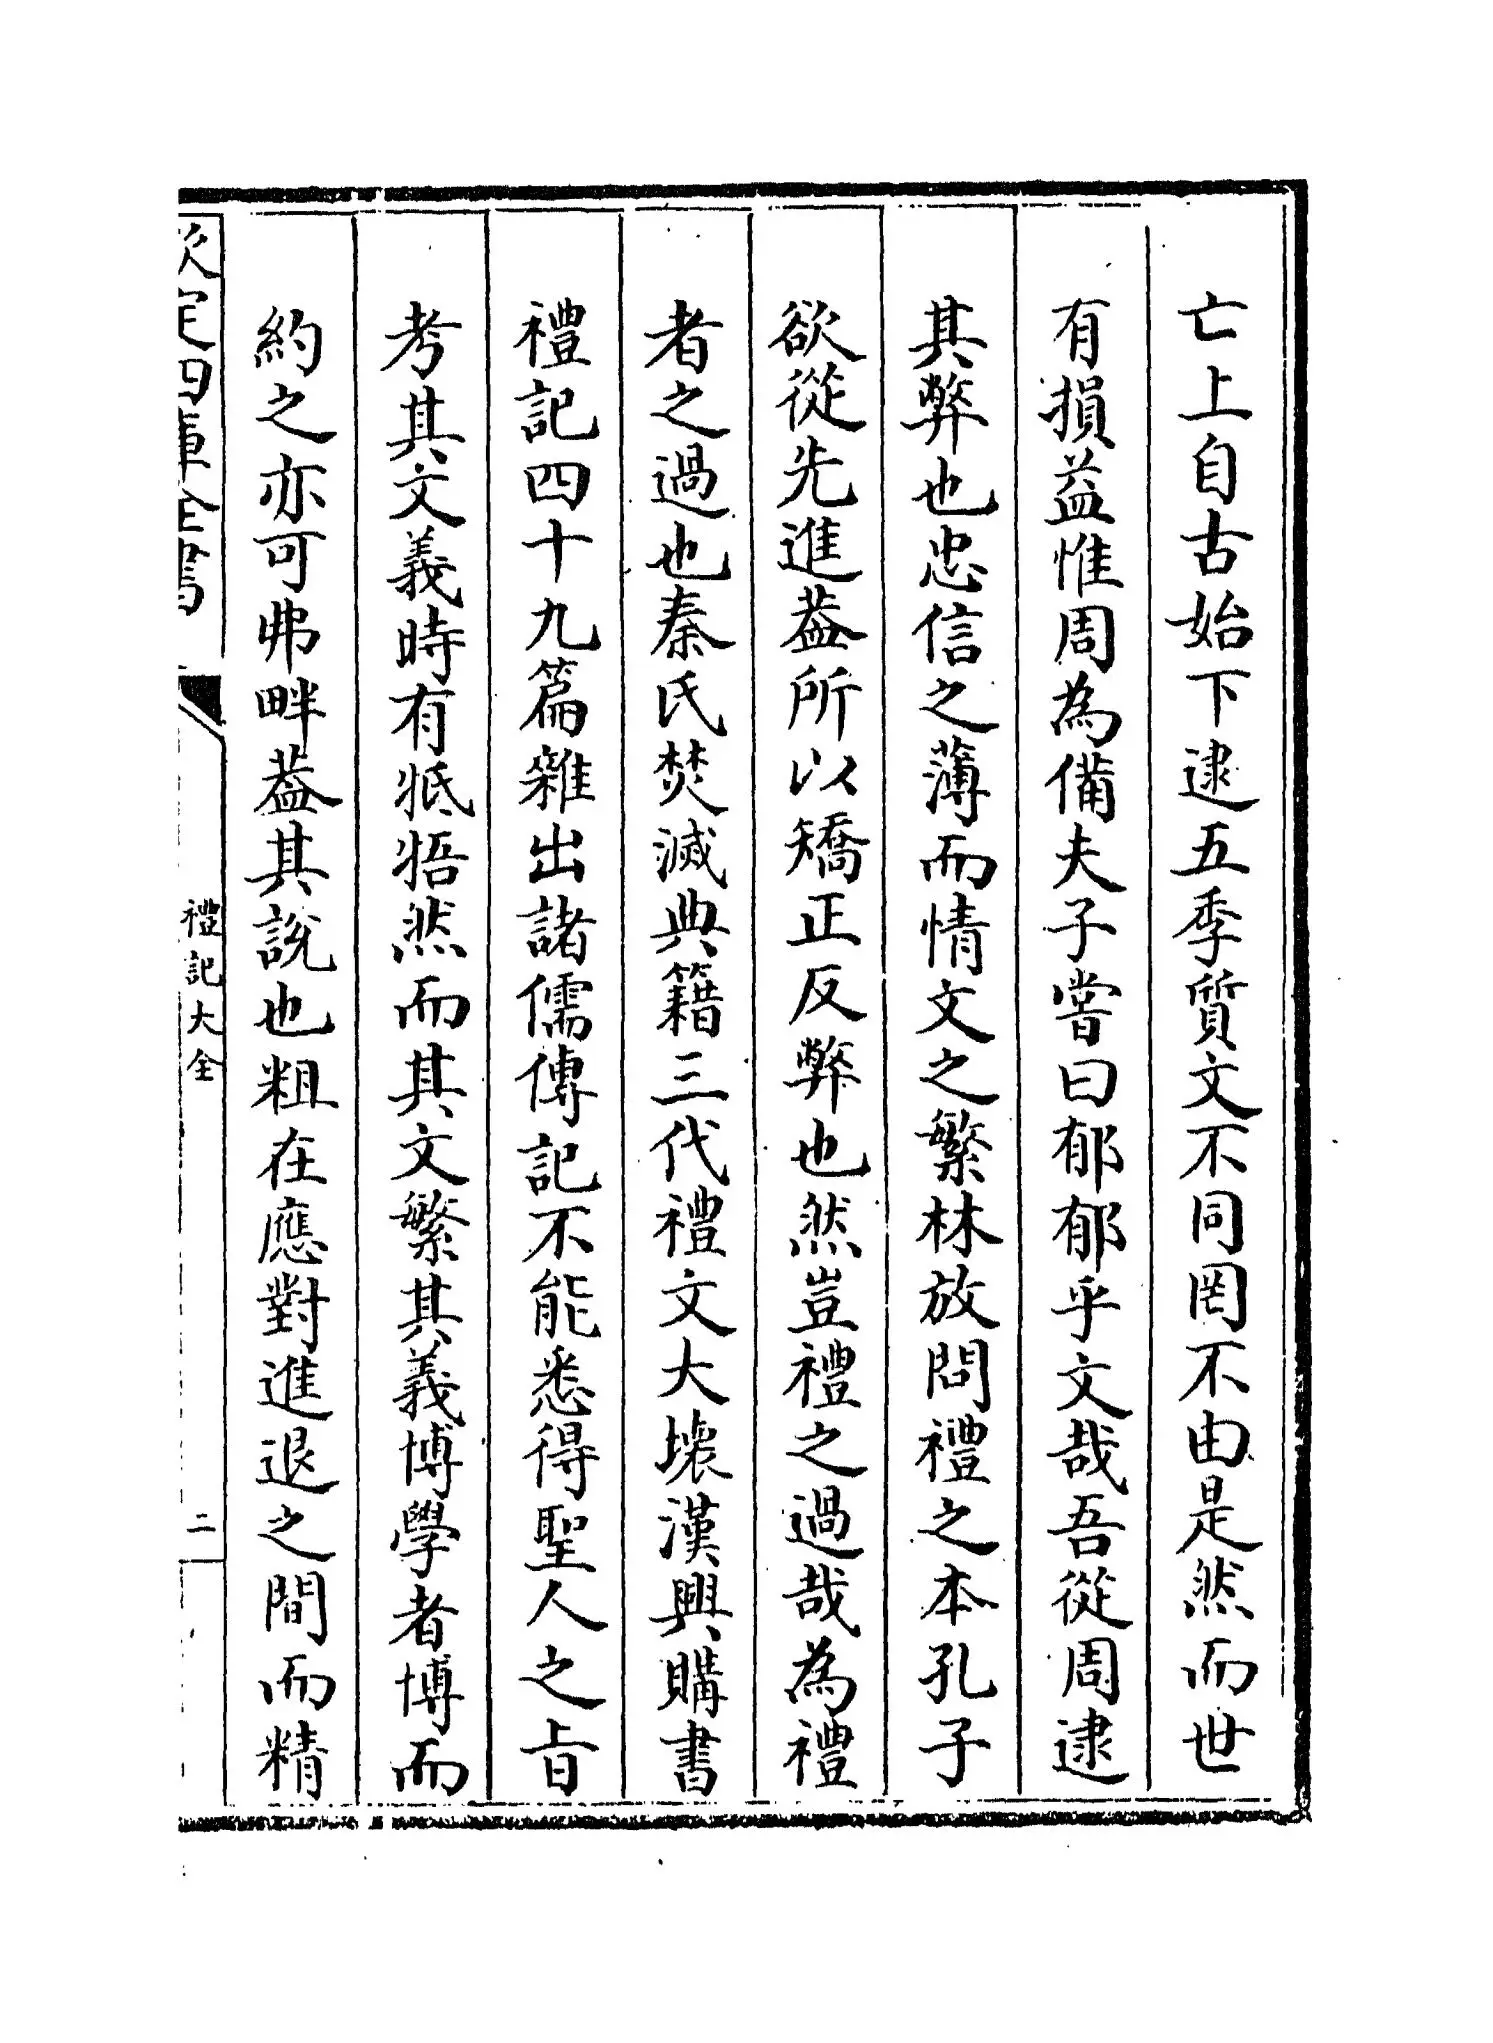 亡上自古始下逮五季質文不同罔不由是然而世
有損益惟周為備夫子嘗曰郁郁乎文哉吾從周逮
其弊也忠信之薄而情文之繁林放問禮之本孔子
欲從先進葢所以矯正反弊也然豈禮之過哉為禮
者之過也秦氏焚滅典籍三代禮文大壞漢興購書
禮記四十九篇雜出諸儒傳記不能悉得聖人之㫖
考其文義時有牴牾然而其文繁其義博學者博而
約之亦可弗畔葢其說也粗在應對進退之間而精
欽定四庫全書
禮記大全
二